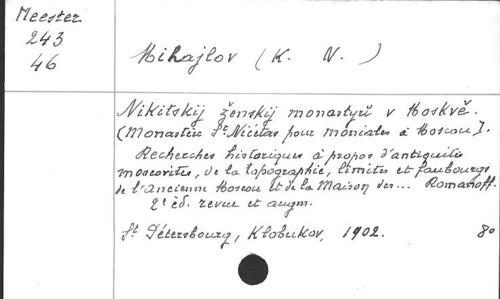 Meester
243
46
Mihajlov (K. N.)
Nikitskij ženskij monastyrĭ v Moskvě.
(Monastère St Nicétas pour moniales à Moscou).
Recherches historiques à propos d'antiquités
moscovites, de la topographie, limites et faubourgs
de l'ancienne Moscou et de la Maison des... Romanoff.
2e éd. revue et augm.
St Pétersbourg, Klobukov, 1902. 8o